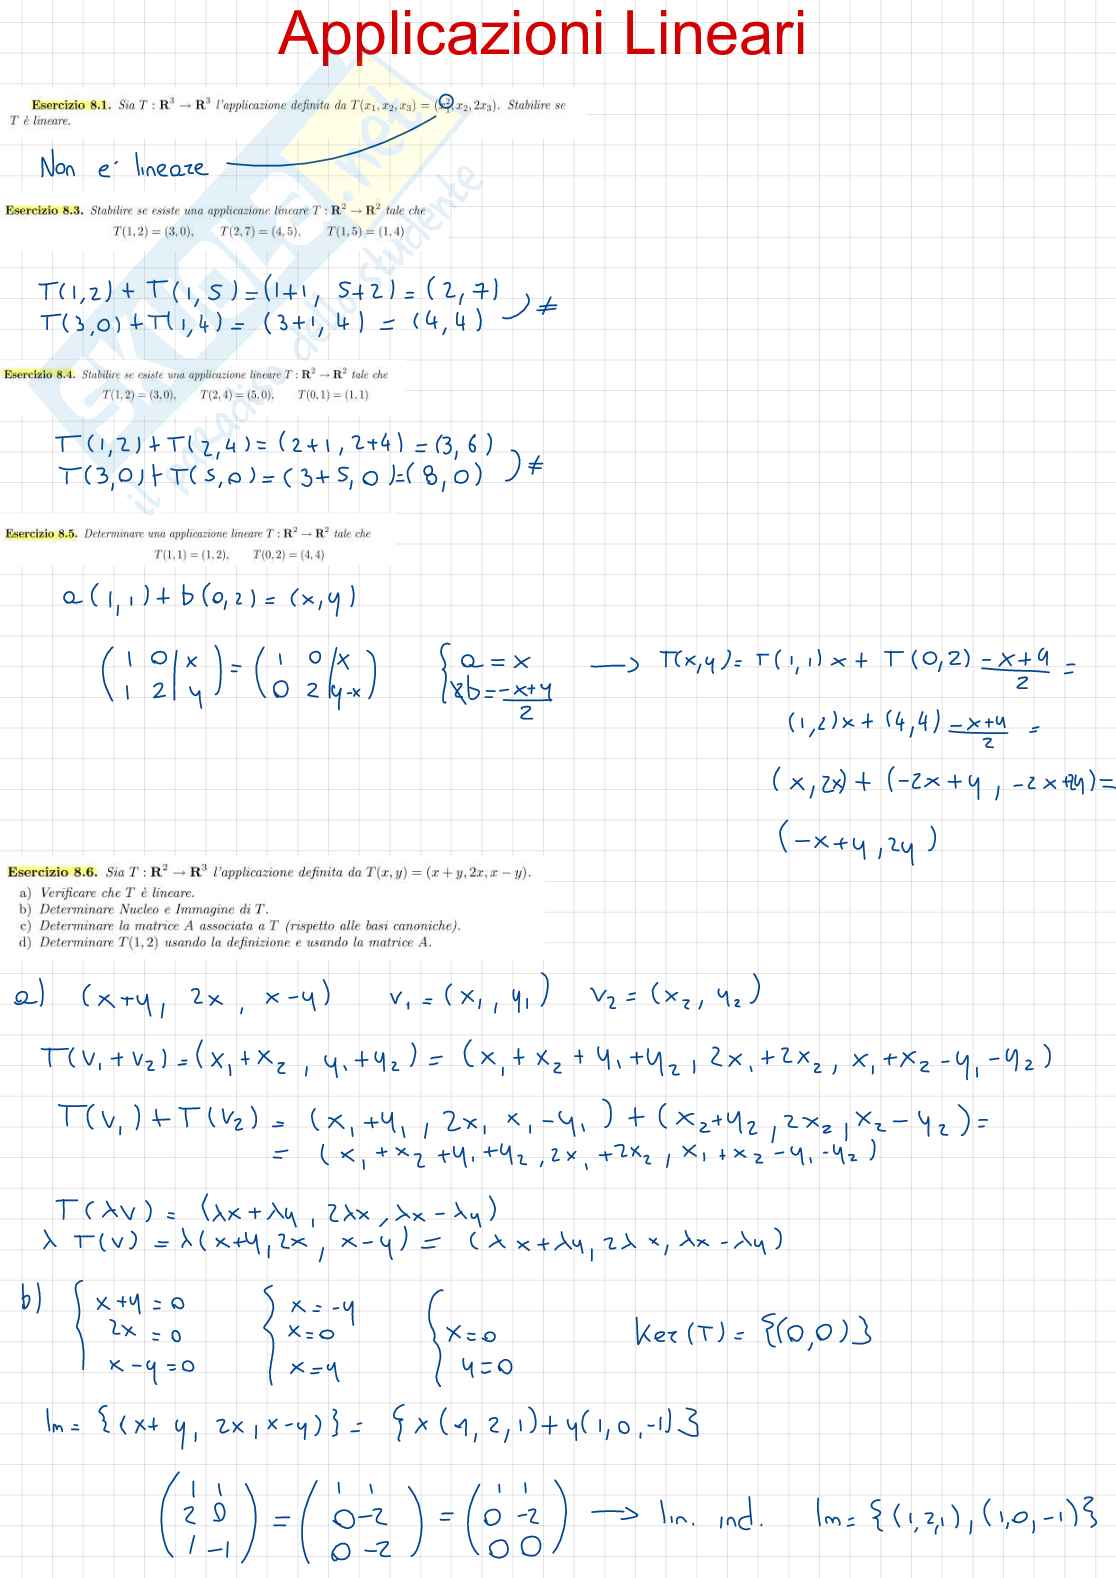 Applicazioni Lineari
Esercizio 8.1. Sia T : R³ → R³ l'applicazione definita da T(x₁, x₂, x₃) = (x₁², x₂, 2x₃). Stabilire se
T è lineare.
Non e' lineare
Esercizio 8.3. Stabilire se esiste una applicazione lineare T : R² → R² tale che
T(1,2) = (3,0), T(2,7) = (4,5), T(1,5) = (1,4)
T(1,2) + T(1,5) = (1+1, 5+2) = (2,7)
T(3,0) + T(1,4) = (3+1, 4) = (4,4) ) ≠
Esercizio 8.4. Stabilire se esiste una applicazione lineare T : R² → R² tale che
T(1,2) = (3,0), T(2,4) = (5,0), T(0,1) = (1,1)
T(1,2) + T(2,4) = (2+1, 2+4) = (3,6)
T(3,0) + T(5,0) = (3+5, 0) = (8,0) ) ≠
Esercizio 8.5. Determinare una applicazione lineare T : R² → R² tale che
T(1,1) = (1,2), T(0,2) = (4,4)
a(1,1) + b(0,2) = (x,y)
(1 0 | x) = (1 0 | x) { a = x → T(x,y) = T(1,1)x + T(0,2) -x+y/2 =
(1 2 | y) (0 2 | y-x) { 2b = -x+y/2
(1,2)x + (4,4) -x+y/2 =
(x,2x) + (-2x+y, -2x+2y) =
(-x+y, 2y)
Esercizio 8.6. Sia T : R² → R³ l'applicazione definita da T(x,y) = (x + y, 2x, x − y).
a) Verificare che T è lineare.
b) Determinare Nucleo e Immagine di T.
c) Determinare la matrice A associata a T (rispetto alle basi canoniche).
d) Determinare T(1,2) usando la definizione e usando la matrice A.
a) (x+y, 2x, x-y) v₁ = (x₁, y₁) v₂ = (x₂, y₂)
T(v₁+v₂) = (x₁+x₂, y₁+y₂) = (x₁+x₂+y₁+y₂, 2x₁+2x₂, x₁+x₂-y₁-y₂)
T(v₁)+T(v₂) = (x₁+y₁, 2x₁ x₁-y₁) + (x₂+y₂, 2x₂, x₂-y₂) =
= (x₁+x₂+y₁+y₂, 2x₁+2x₂, x₁+x₂-y₁-y₂)
T(λv) = (λx+λy, 2λx, λx-λy)
λ T(v) = λ(x+y, 2x, x-y) = (λx+λy, 2λx, λx-λy)
b) { x+y=0 { x=-y { Ker(T) = {(0,0)}
2x=0 x=0 x=0
x-y=0 x=y y=0
Im = {(x+y, 2x, x-y)} = {x(1,2,1)+y(1,0,-1)}
(1 1) = (1 1) = (1 1)
(2 0) (0 -2) (0 -2) → lin. ind. Im = {(1,2,1),(1,0,-1)}
(1 -1) (0 -2) (0 0)
SKUOLA.net
il paradiso dello studente